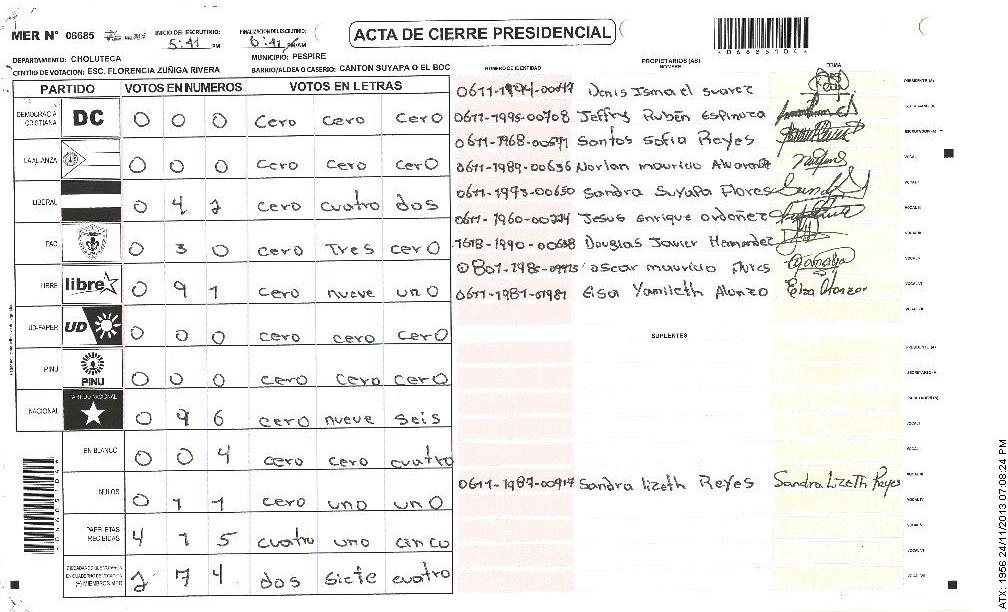 MER N° 06685 INICIO DEL ESCRUTINIO: 5:41 PM FINALIZACION DE ESCRUTINIO: 6:41 PM
ACTA DE CIERRE PRESIDENCIAL
DEPARTAMENTO: CHOLUTECA MUNICIPIO: PESPIRE
CENTRO DE VOTACION: ESC. FLORENCIA ZUÑIGA RIVERA BARRIO/ALDEA O CASERIO: CANTON SUYAPA O EL BOC
PARTIDO VOTOS EN NUMEROS VOTOS EN LETRAS
NUMERO DE IDENTIDAD PROPIETARIOS (AS) NOMBRE FIRMA
DEMOCRACIA CRISTIANA DC 0 0 0 cero cero cero
LA ALIANZA 0 0 0 cero cero cero
LIBERAL 0 4 2 cero cuatro dos
PAC 0 3 0 cero Tres cero
LIBRE libre 0 9 1 cero nueve uno
UD-FAPER UD 0 0 0 cero cero cero
PINU PINU 0 0 0 cero cero cero
NACIONAL PARTIDO NACIONAL 0 9 6 cero nueve seis
EN BLANCO 0 0 4 cero cero cuatro
NULOS 0 1 1 cero uno uno
PAPELETAS RECIBIDAS 4 1 5 cuatro uno cinco
2 7 4 dos siete cuatro
Denis Ismael Suarez
0611-1995-00708 Jeffry Rubén Espinoza
Santos Sofia Reyes
0611-1989-00636 Norlan mauricio Alvarado
0611-1993-00650 Sandra Suyapa Flores
0611-1960-00224 Jesus enrique ordoñez
Douglas Javier Hernandez
oscar mauricio flores
0611-1981-01981 Elsa Yamileth Alonzo
SUPLENTES
0611-1987-00917 Sandra lizeth Reyes Sandra Lizeth Reyes
ATX: 1956 24/11/2013 07:08:24 PM